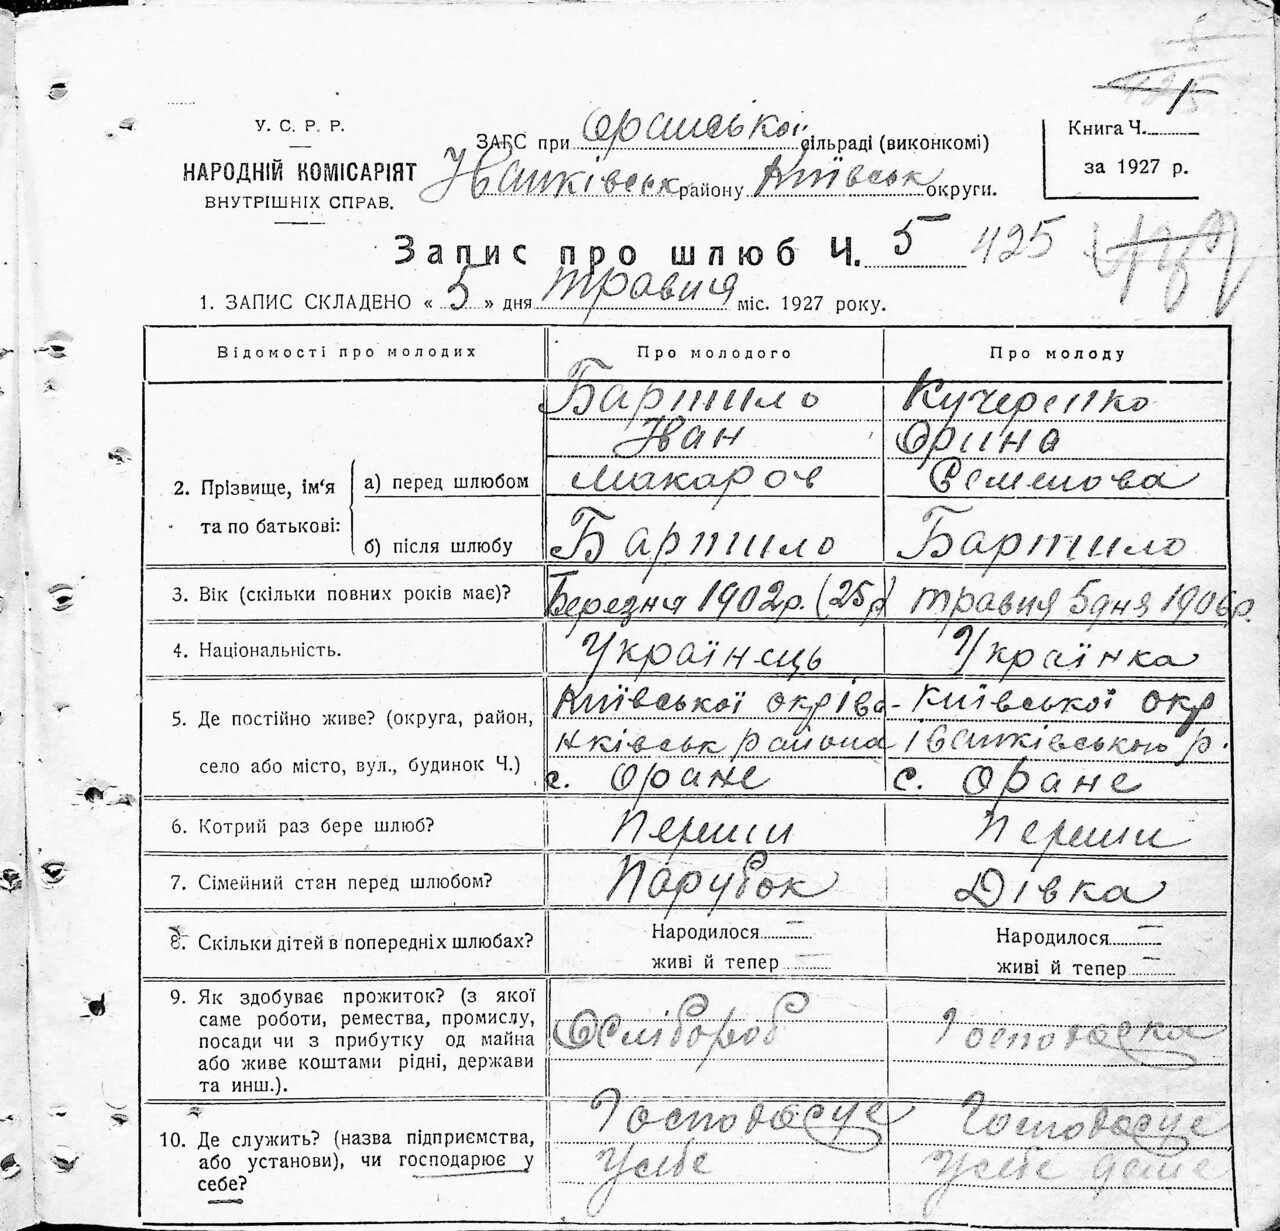 У. С. Р. Р.
НАРОДНІЙ КОМІСАРІЯТ
ВНУТРІШНІХ СПРАВ.
ЗАГС при Оранської сільраді (виконкомі)
Іванківськ району Київськ округи.
Книга Ч.
за 1927 р.
Запис про шлюб Ч. 5 425
1. ЗАПИС СКЛАДЕНО « 5 » дня травня міс. 1927 року.
Відомості про молодих Про молодого Про молоду
2. Прізвище, ім'я та по батькові:
а) перед шлюбом
Бартило Кучеренко
Іван Орина
Макаров Семенова
б) після шлюбу Бартило Бартило
3. Вік (скільки повних років має)? Березня 1902р. (25р) травня 5 дня 1906р.
4. Національність. Українець Українка
5. Де постійно живе? (округа, район,
село або місто, вул., будинок Ч.)
Київської окр Іва- Київської окр
нківськ района Іванківського р.
с. Оране с. Оране
6. Котрий раз бере шлюб? Перши Перши
7. Сімейний стан перед шлюбом? Парубок Дівка
8. Скільки дітей в попередніх шлюбах? Народилося — Народилося —
живі й тепер — живі й тепер —
9. Як здобуває прожиток? (з якої
саме роботи, ремества, промислу,
посади чи з прибутку од майна
або живе коштами рідні, держави
та инш.).
Хлібороб Господарка
10. Де служить? (назва підприємства,
або установи), чи господарює у
себе?
Господарує Господарує
У себе У себе дома